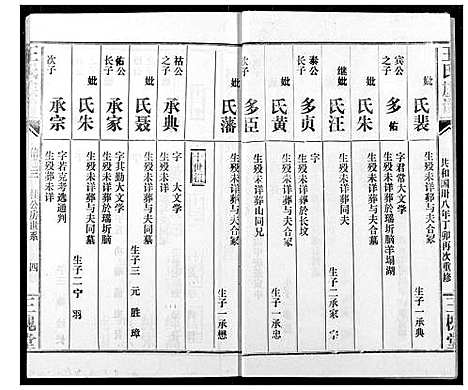 妣 氏裴
生殁未详葬与夫合冢
生子一承典
宾公之子 多佑
字君常大文学
生殁未详葬於珑圻脑羊塌湖
妣 氏朱
生殁未详葬与夫合冢
继妣 氏汪
生殁未详葬同夫
生子二承家 宗
泰公长子 多贞
生殁未详葬於长坟
妣 氏黄
生殁未详葬与夫合冢
生子一承忠
次子 多臣
生殁未详葬山同兄
妣 氏藩
生殁未详葬与夫合冢
生子一承懋
祜公之子 承典
字 大文学
生殁未详葬
妣 氏聂
生殁未详葬与夫同墓
生子三 元 胜 璋
佑公长子 承家
字其勤大文学
生殁未详葬於珑圻脑
妣 氏朱
生殁未详葬与夫同墓
生子二 宁 羽
次子 承宗
字若克考选通判
生殁葬未详
公房世系
四
三槐堂
王氏
共和国卅八年丁卯再次重修
三槐堂